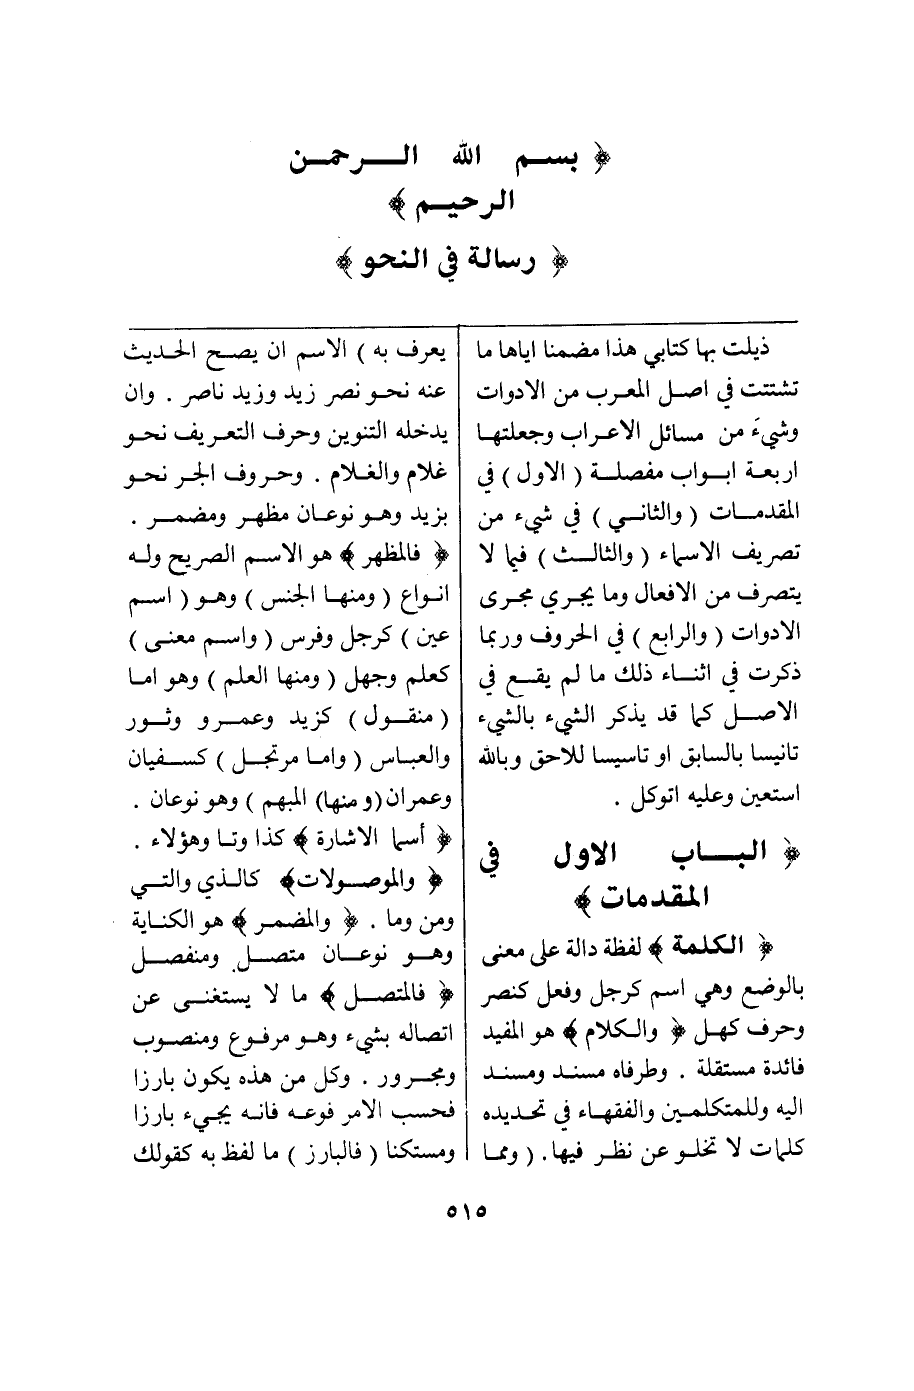 ﴿ بسم الله الرحمن
الرحيم ﴾
﴿ رسالة في النحو ﴾
ذيلت بها كتابي هذا مضمنا اياها ما
تشتت في اصل المعرب من الادوات
وشيءَ من مسائل الاعراب وجعلتها
اربعة ابواب مفصلة ( الاول ) في
المقدمات ( والثاني ) في شيء من
تصريف الاسماء ( والثالث ) فيما لا
يتصرف من الافعال وما يجري مجرى
الادوات ( والرابع ) في الحروف وربما
ذكرت في اثناء ذلك ما لم يقع في
الاصل كما قد يذكر الشيء بالشيء
تانيسا بالسابق او تاسيسا للاحق وبالله
استعين وعليه اتوكل .
﴿ الباب الاول في
المقدمات ﴾
﴿ الكلمة ﴾ لفظة دالة على معنى
بالوضع وهي اسم كرجل وفعل كنصر
وحرف كهل ﴿ والكلام ﴾ هو المفيد
فائدة مستقلة . وطرفاه مسند ومسند
اليه وللمتكلمين والفقهاء في تحديده
كلمات لا تخلو عن نظر فيها. ( ومما
يعرف به ) الاسم ان يصح الحديث
عنه نحو نصر زيد وزيد ناصر . وان
يدخله التنوين وحرف التعريف نحو
غلام والغلام . وحروف الجر نحو
بزيد وهو نوعان مظهر ومضمر .
﴿ فالمظهر ﴾ هو الاسم الصريح وله
انواع ( ومنها الجنس ) وهو ( اسم
عين ) كرجل وفرس ( واسم معنى )
كعلم وجهل ( ومنها العلم ) وهو اما
( منقول ) كزيد وعمرو وثور
والعباس ( واما مرتجل ) كسفيان
وعمران (ومنها) المبهم ) وهو نوعان .
﴿ أسما الاشارة ﴾ كذا وتا وهؤلاء .
﴿ والموصولات ﴾ كالذي والتي
ومن وما . ﴿ والمضمر ﴾ هو الكناية
وهو نوعان متصل ومنفصل
﴿ فالمتصل ﴾ ما لا يستغنى عن
اتصاله بشيء وهو مرفوع ومنصوب
ومجرور . وكل من هذه يكون بارزا
فحسب الامر فوعه فانه يجيء بارزا
ومستكنا ( فالبارز ) ما لفظ به كقولك
٥١٥